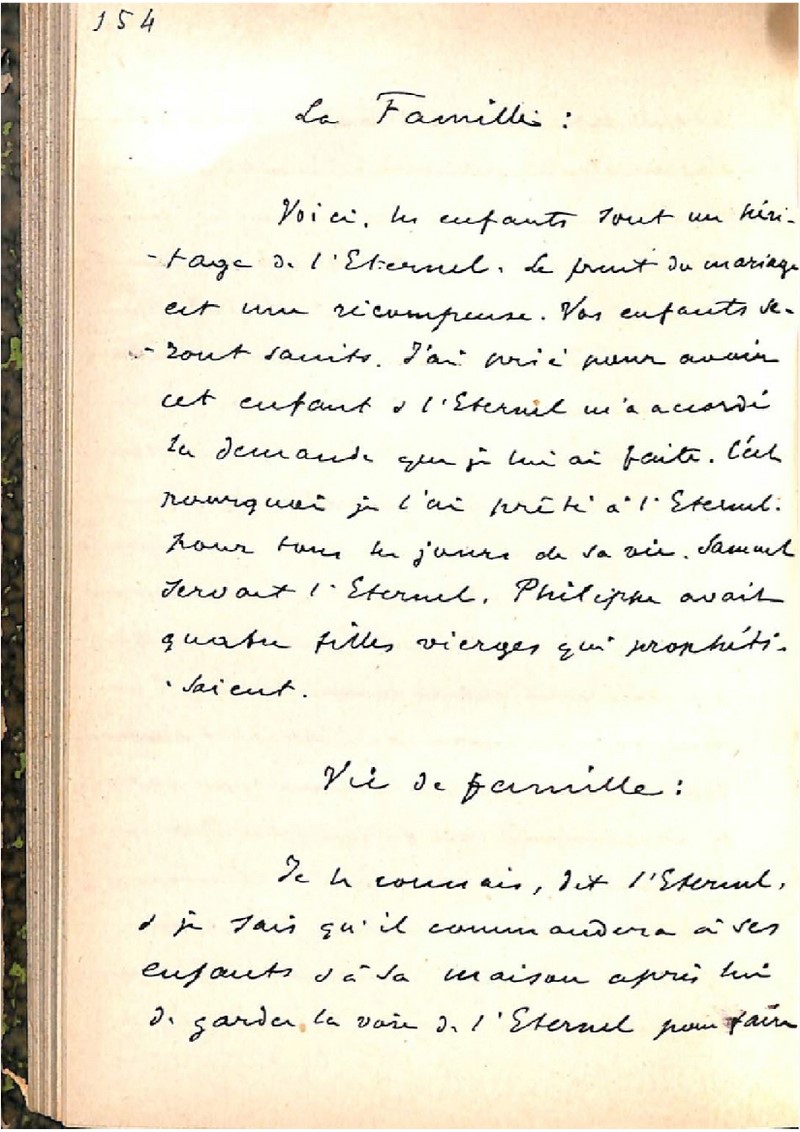 154
La Famille :
Voici, les enfants sont un héri-
-tage de l'Eternel. Le fruit du mariage
est une récompense. Vos enfants se-
-ront saints. J'ai prié pour avoir
cet enfant & l'Eternel m'a accordé
la demande que je lui ai faite. C'est
pourquoi je l'ai prêté à l'Eternel.
pour tous les jours de sa vie. Samuel
servait l'Eternel. Philippe avait
quatre filles vierges qui prophéti-
-saient.
Vie de famille :
Je le connais, dit l'Eternel,
& je sais qu'il commandera à ses
enfants & à sa maison après lui
de garder la voie de l'Eternel pour faire